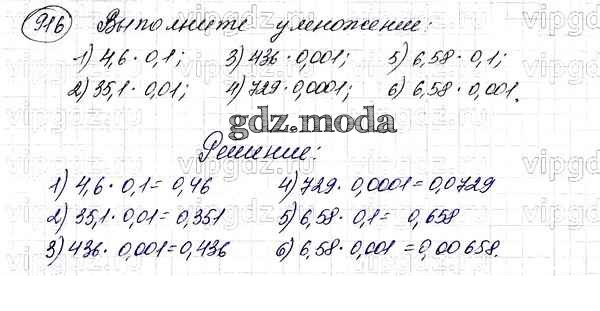 916 Выполните умножение:
1) 4,6 · 0,1; 3) 436 · 0,001; 5) 6,58 · 0,1;
2) 35,1 · 0,01; 4) 729 · 0,0001; 6) 6,58 · 0,001.
gdz.moda
Решение:
1) 4,6 · 0,1 = 0,46 4) 729 · 0,0001 = 0,0729
2) 35,1 · 0,01 = 0,351 5) 6,58 · 0,1 = 0,658
3) 436 · 0,001 = 0,436 6) 6,58 · 0,001 = 0,00658.